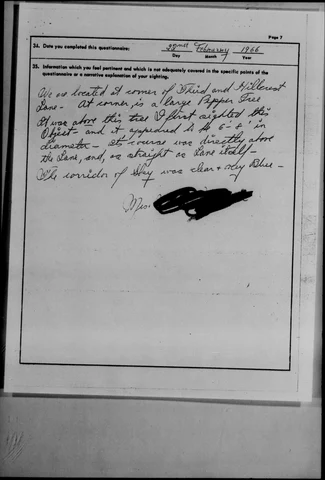 Page 7
34. Date you completed this questionnaire: 22nd February 1966
Day Month Year
35. Information which you feel pertinent and which is not adequately covered in the specific points of the
questionnaire or a narrative explanation of your sighting.
We are located at corner of Third and Hillcrest
Lane - At corner is a large Pepper Tree
It was above this tree I first sighted this
Object - and it appeared to be 6 - 8' in
diameter - its course was directly above
the Lane, and, as straight as Lane itself -
The corridor of Sky was clear & Sky Blue -
Mrs.